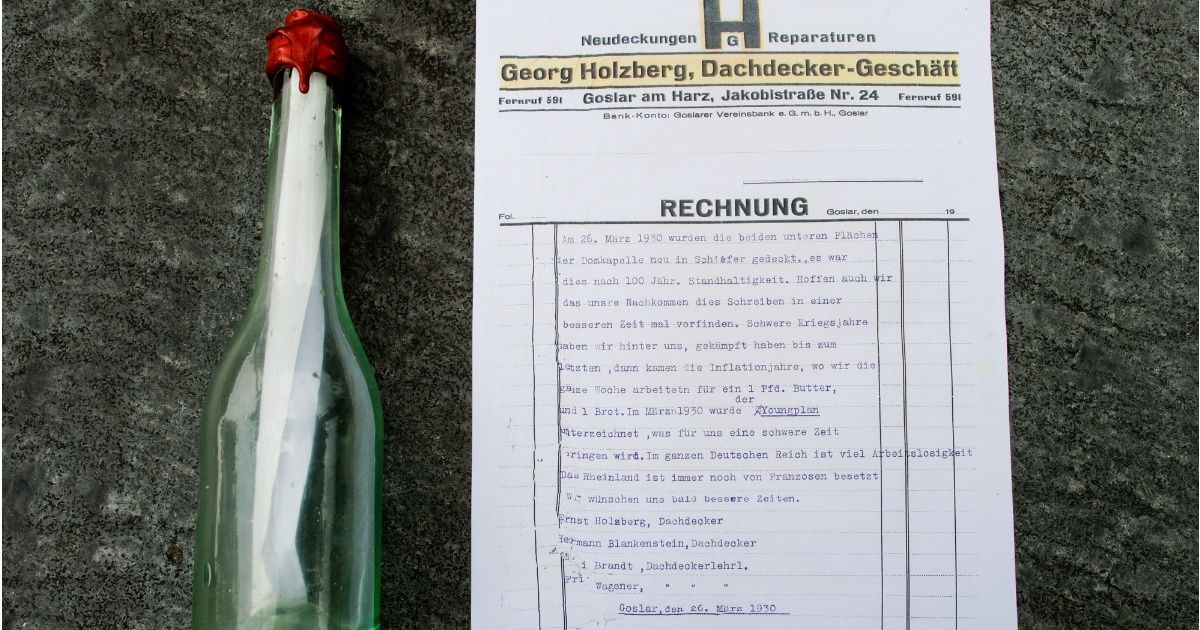 H
G
Neudeckungen Reparaturen
Georg Holzberg, Dachdecker-Geschäft
Fernruf 591 Goslar am Harz, Jakobistraße Nr. 24 Fernruf 591
Bank-Konto: Goslarer Vereinsbank e. G. m. b. H., Goslar
RECHNUNG
Fol. Goslar, den 19
Am 26. März 1930 wurden die beiden unteren Flächen
der Domkapelle neu in Schiefer gedeckt.,es war
dies nach 100 Jähr. Standhaltigkeit. Hoffen auch wir
das unsre Nachkommen dies Schreiben in einer
besseren Zeit mal vorfinden. Schwere Kriegsjahre
haben wir hinter uns, gekämpft haben bis zum
letzten ,dann kamen die Inflationjahre, wo wir die
ganze Woche arbeitetn für ein 1 Pfd. Butter,
und 1 Brot.Im Märzn1930 wurde der Youngplan
unterzeichnet ,was für uns eine schwere Zeit
bringen wird.Im ganzen Deutschen Reich ist viel Arbeitslosigkeit
Das Rheinland ist immer noch von Franzosen besetzt
Wir wünschen uns bald bessere Zeiten.
Ernst Holzberg, Dachdecker
Hermann Blankenstein,Dachdecker
i Brandt ,Dachdeckerlehrl.
Fri
Wagener, " " "
Goslar,den 26. März 1930